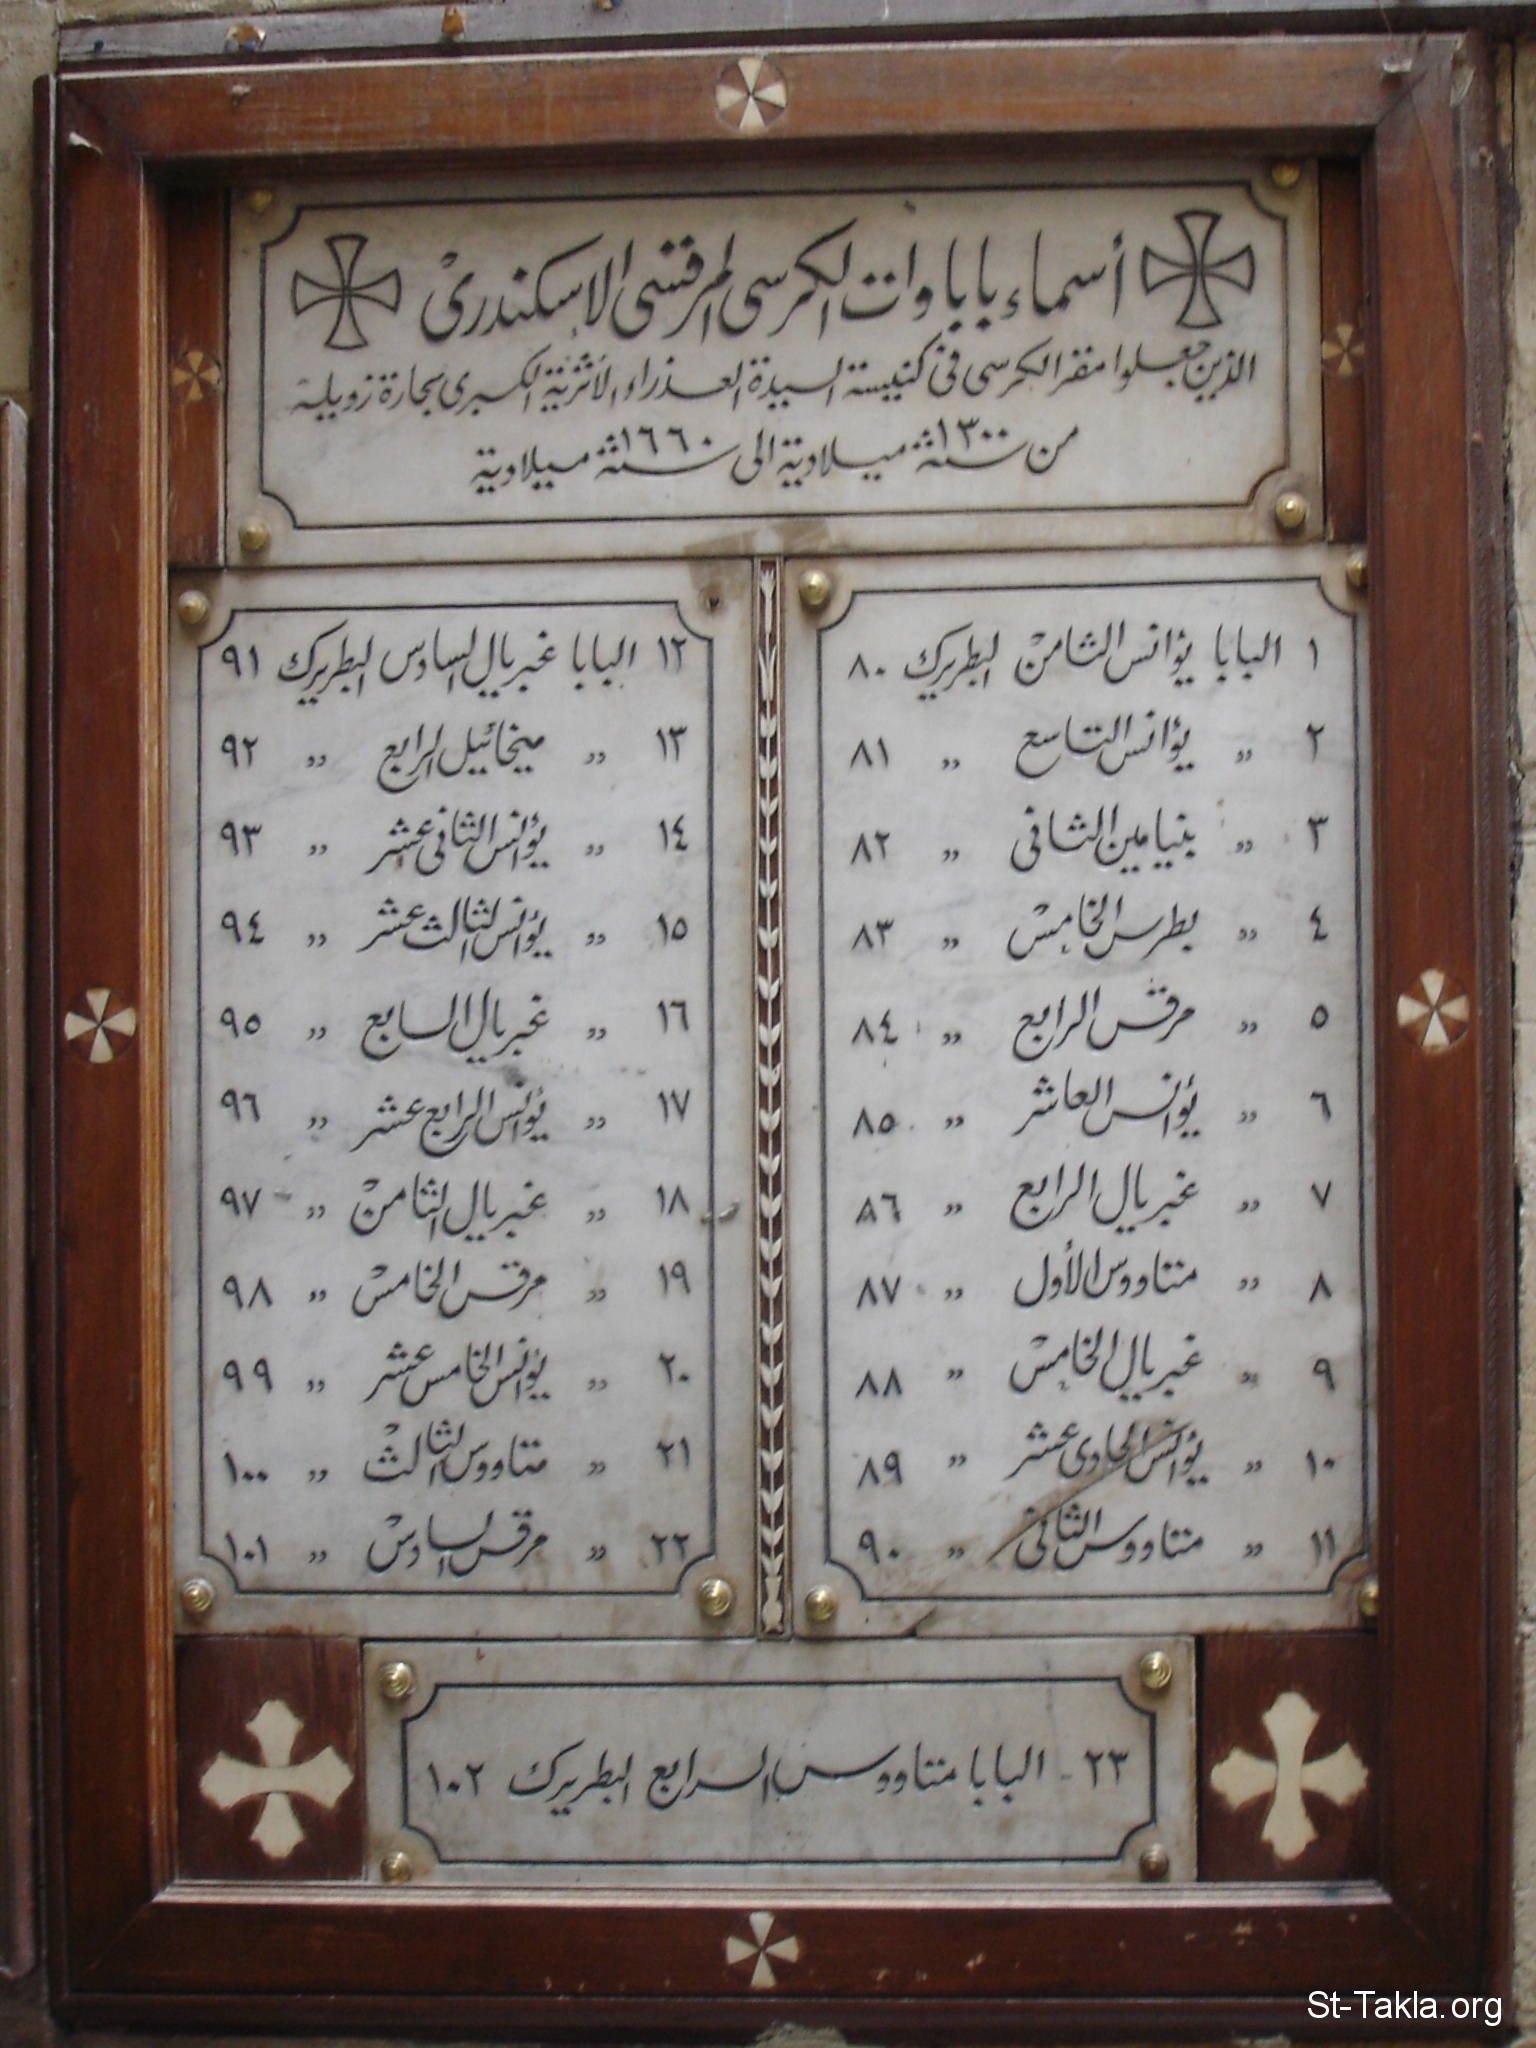 أسماء باباوات الكرسى المرقسى الاسكندرى
الذين جعلوا مقر الكرسى فى كنيسة السيدة العذراء الأثرية الكبرى بحارة زويلة
من سنة ١٣٠٠ ميلادية الى سنة ١٦٦٠ ميلادية
١ البابا يؤانس الثامن البطريرك ٨٠
٢ " يؤانس التاسع " ٨١
٣ " بنيامين الثانى " ٨٢
٤ " بطرس الخامس " ٨٣
٥ " مرقس الرابع " ٨٤
٦ " يؤانس العاشر " ٨٥
٧ " غبريال الرابع " ٨٦
٨ " متاووس الأول " ٨٧
٩ " غبريال الخامس " ٨٨
١٠ " يؤانس الحادى عشر " ٨٩
١١ " متاووس الثانى " ٩٠
١٢ البابا غبريال السادس البطريرك ٩١
١٣ " ميخائيل الرابع " ٩٢
١٤ " يؤانس الثانى عشر " ٩٣
١٥ " يؤانس الثالث عشر " ٩٤
١٦ " غبريال السابع " ٩٥
١٧ " يؤانس الرابع عشر " ٩٦
١٨ " غبريال الثامن " ٩٧
١٩ " مرقس الخامس " ٩٨
٢٠ " يؤانس الخامس عشر " ٩٩
٢١ " متاووس الثالث " ١٠٠
٢٢ " مرقس السادس " ١٠١
٢٣ - البابا متاووس الرابع البطريرك ١٠٢
St-Takla.org